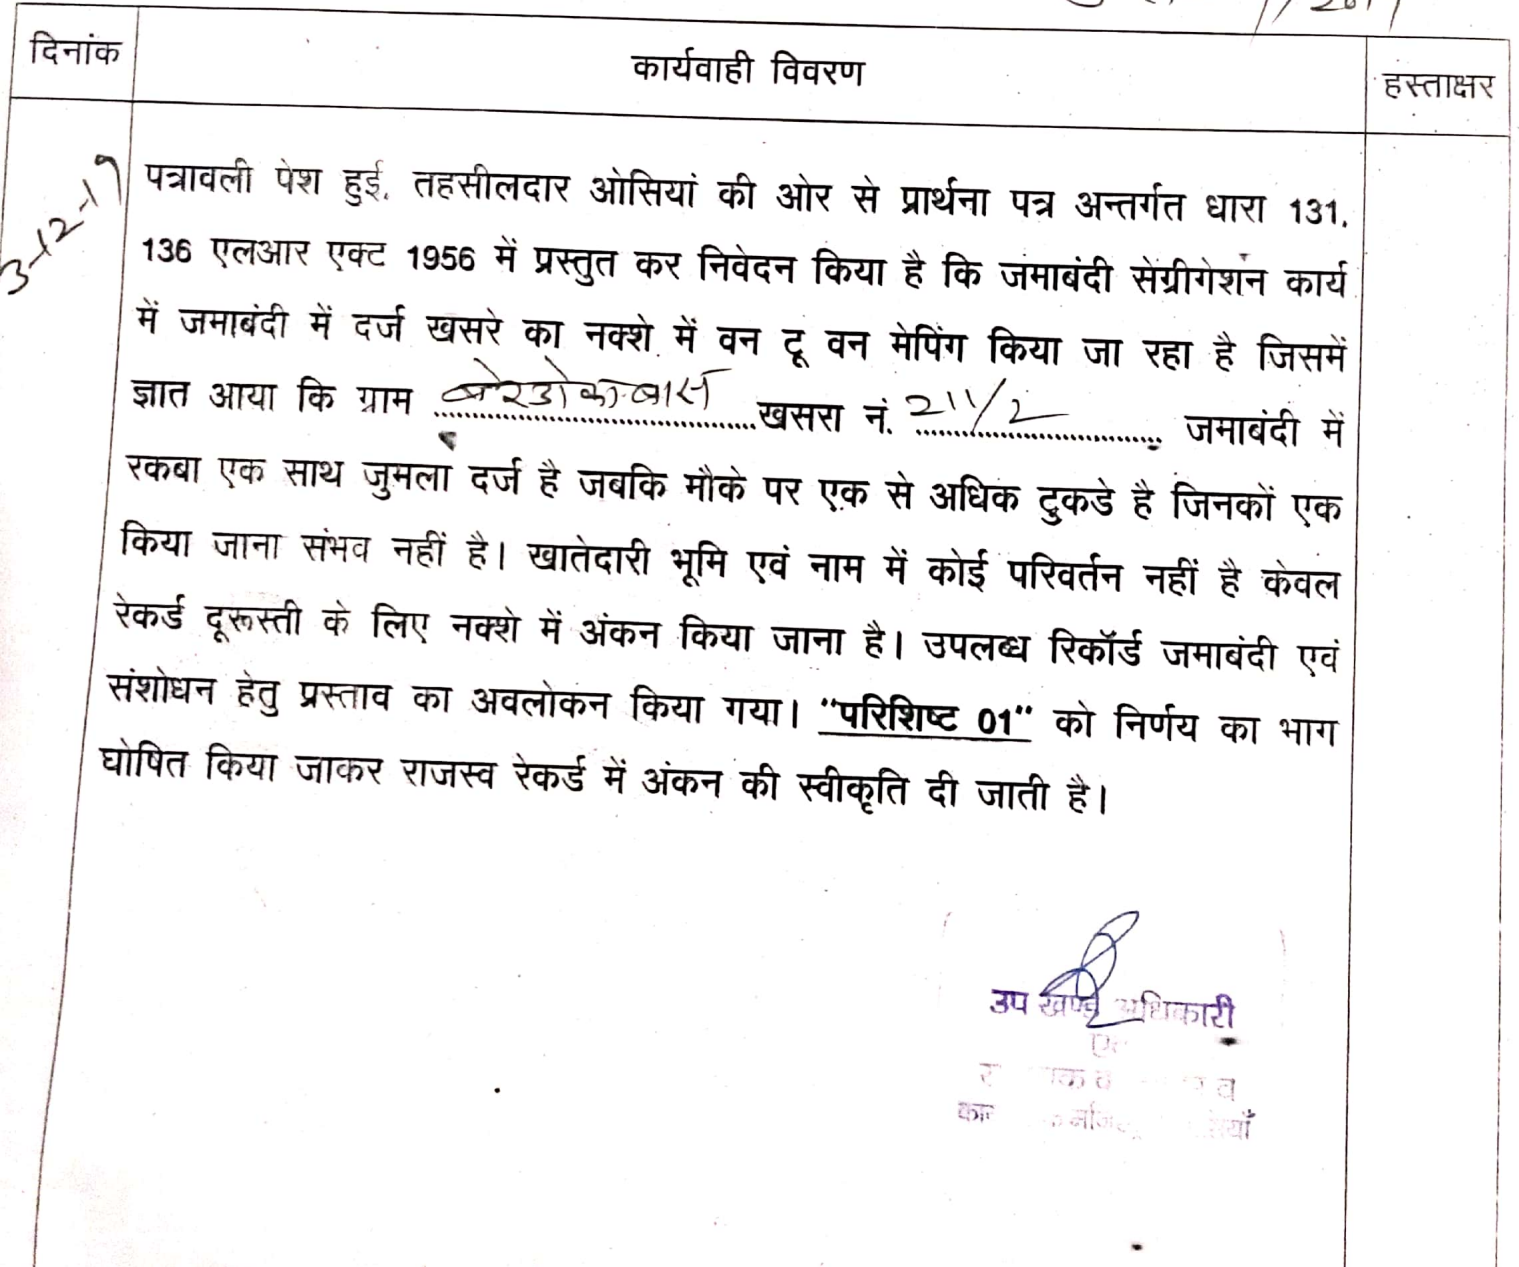 दिनांक
कार्यवाही विवरण
हस्ताक्षर
3-12-19
पत्रावली पेश हुई. तहसीलदार ओसियां की ओर से प्रार्थना पत्र अन्तर्गत धारा 131.
136 एलआर एक्ट 1956 में प्रस्तुत कर निवेदन किया है कि जमाबंदी सेग्रीगेशन कार्य
में जमाबंदी में दर्ज खसरे का नक्शे में वन टू वन मेपिंग किया जा रहा है जिसमें
ज्ञात आया कि ग्राम ....................खसरा नं. 211/2 जमाबंदी में
रकबा एक साथ जुमला दर्ज है जबकि मौके पर एक से अधिक टुकडे है जिनकों एक
किया जाना संभव नहीं है। खातेदारी भूमि एवं नाम में कोई परिवर्तन नहीं है केवल
रेकर्ड दूरूस्ती के लिए नक्शे में अंकन किया जाना है। उपलब्ध रिकॉर्ड जमाबंदी एवं
संशोधन हेतु प्रस्ताव का अवलोकन किया गया। "परिशिष्ट 01" को निर्णय का भाग
घोषित किया जाकर राजस्व रेकर्ड में अंकन की स्वीकृति दी जाती है।
उप खण्ड अधिकारी